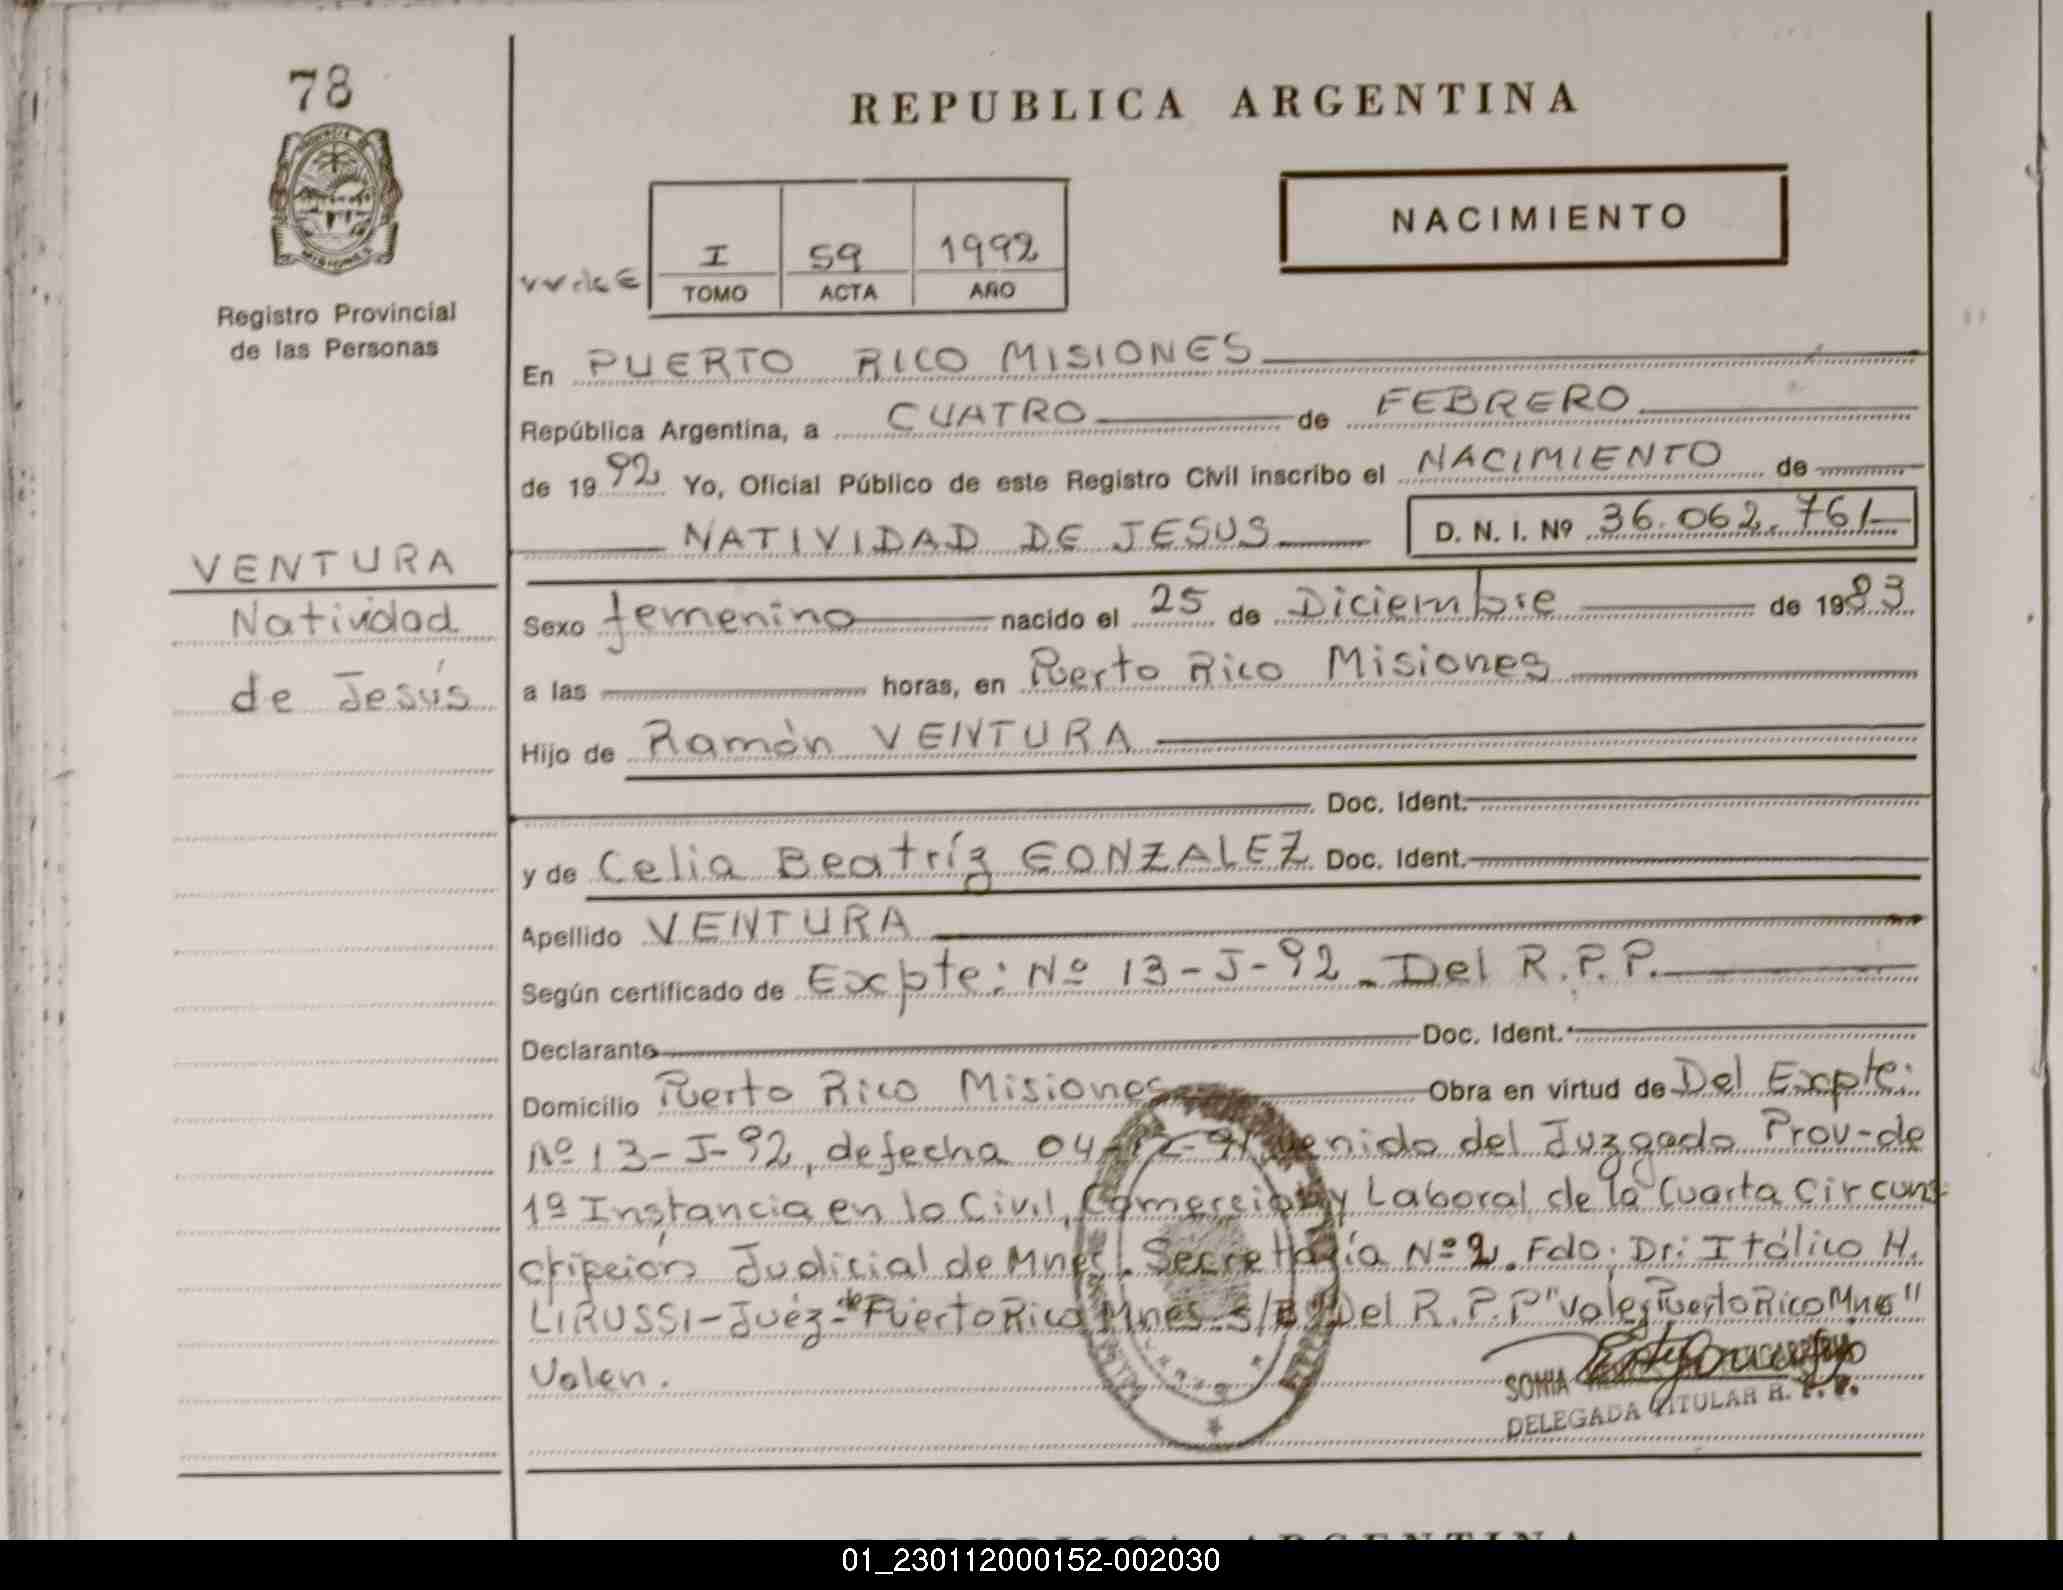 78
REPUBLICA ARGENTINA
NACIMIENTO
I 59 1992
TOMO ACTA AÑO
Registro Provincial
de las Personas
En PUERTO RICO MISIONES
República Argentina, a CUATRO de FEBRERO
de 1992 Yo, Oficial Público de este Registro Civil inscribo el NACIMIENTO de
NATIVIDAD DE JESUS D. N. I. Nº 36.062.761
VENTURA
Natividad
de Jesús
Sexo femenino nacido el 25 de Diciembre de 1983
a las horas, en Puerto Rico Misiones
Hijo de Ramón VENTURA
Doc. Ident.
y de Celia Beatríz GONZALEZ Doc. Ident.
Apellido VENTURA
Según certificado de Expte: Nº 13-J-92. Del R.P.P.
Declarante Doc. Ident.
Domicilio Puerto Rico Misiones Obra en virtud de Del Expte:
Nº 13-J-92, de fecha 04-12-91 venido del Juzgado Prov-de
1º Instancia en lo Civil, Comercial y Laboral de la Cuarta Circuns-
cripción Judicial de Mnes. Secretaría Nº 2. Fdo. Dr: Itálico H.
LIRUSSI-Juéz- de Puerto Rico Mnes. Del R.P.P "Vale, Puerto Rico Mnes"
Valen.
SONIA
DELEGADA TITULAR R. P. P.
MISIONES
REPUBLICA ARGENTINA
01_230112000152-002030